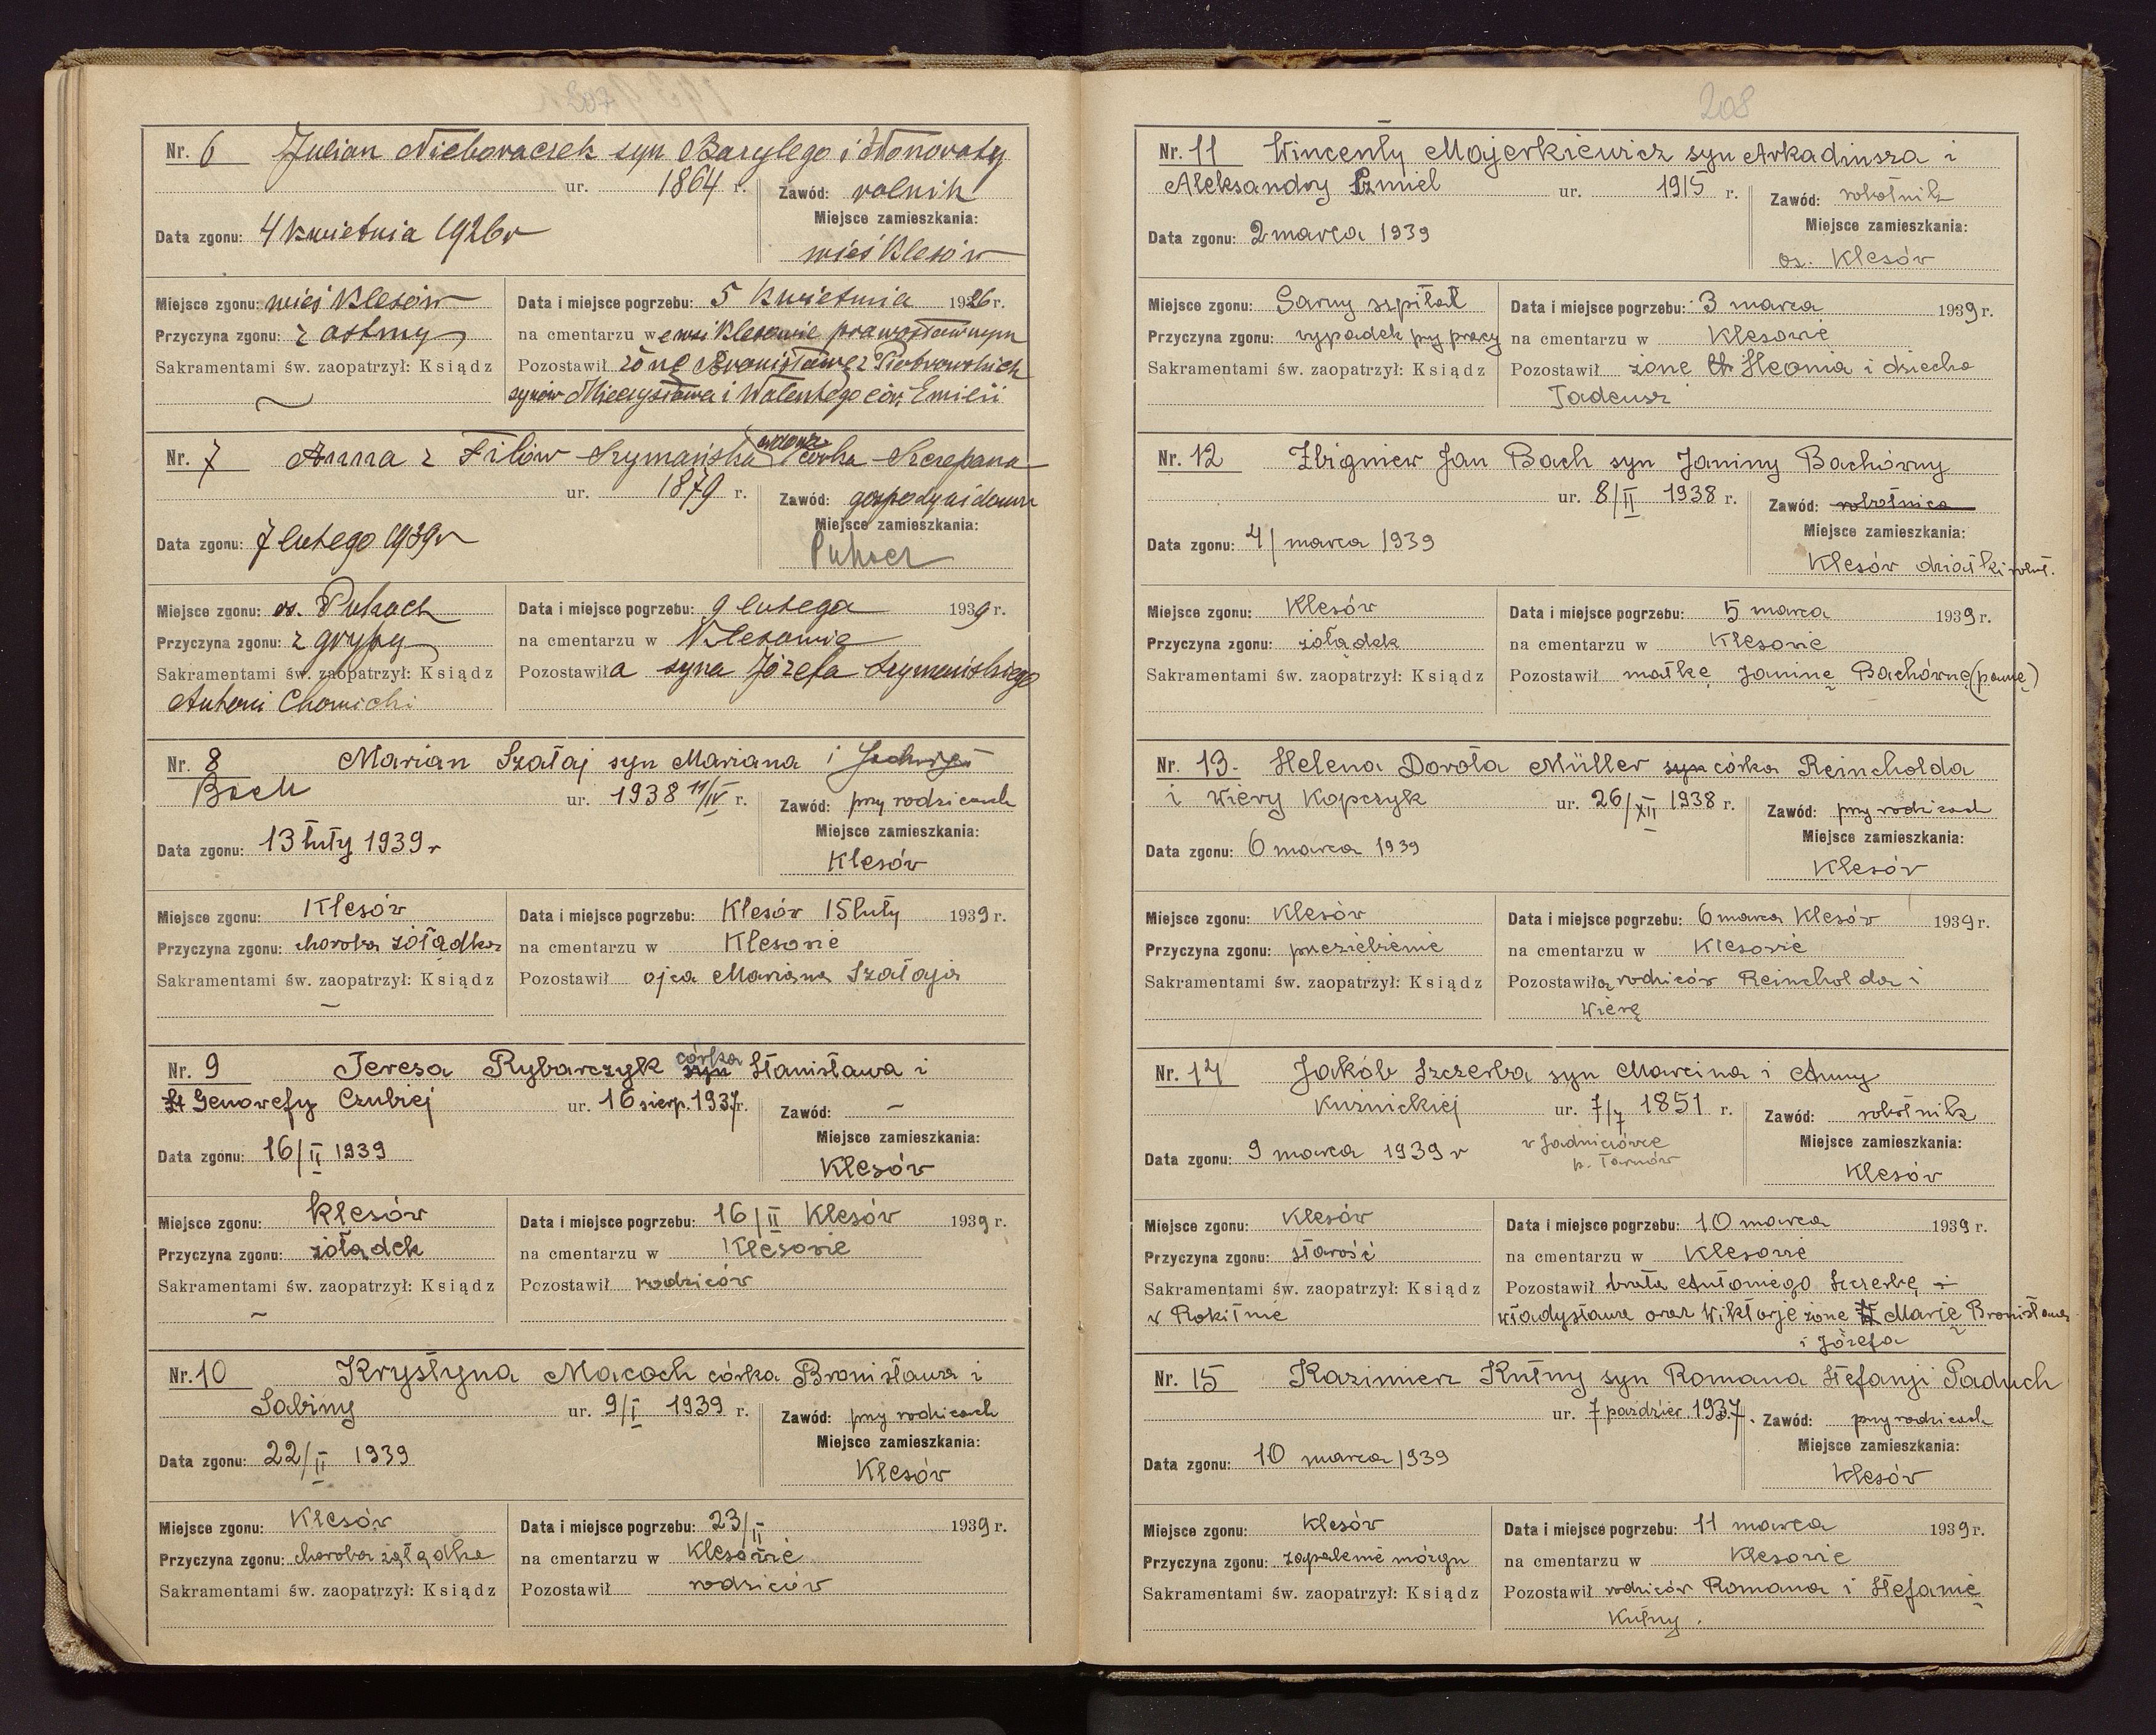 208
Nr. 6 Julian Nieboraczek syn Bazylego i Honoraty
ur. 1864 r. Zawód: rolnik
Miejsce zamieszkania:
Data zgonu: 4 kwietnia 1926 r
wieś Klesów
Miejsce zgonu: wieś Klesów Data i miejsce pogrzebu: 5 kwietnia 1926 r.
Przyczyna zgonu: z astmy na cmentarzu w e wsi Klesowie prawosławnym
Sakramentami św. zaopatrzył: Ksiądz Pozostawił żonę Bronisławę z Piotrowskich
synów Mieczysława i Walentego cór. Emilii
Nr. 7 Anna z Filów Szymańska wdowa córka Szczepana
ur. 1879 r. Zawód: gospodyni domu
Miejsce zamieszkania:
Data zgonu: 7 lutego 1939 r
Puhacz
Miejsce zgonu: os. Puhacz Data i miejsce pogrzebu: 9 lutego 1939 r.
Przyczyna zgonu: z grypy na cmentarzu w Klesowie
Sakramentami św. zaopatrzył: Ksiądz Pozostawiła syna Józefa Szymańskiego
Antoni Chomicki
Nr. 8 Marian Szałaj syn Mariana i Jadwigi
Bach ur. 1938 11/IV r. Zawód: przy rodzicach
Miejsce zamieszkania:
Data zgonu: 13 luty 1939 r
Klesów
Miejsce zgonu: Klesów Data i miejsce pogrzebu: Klesów 15 luty 1939 r.
Przyczyna zgonu: choroba żołądka na cmentarzu w Klesowie
Sakramentami św. zaopatrzył: Ksiądz Pozostawił ojca Mariana Szałaja
–
Nr. 9 Teresa Rybarczyk syn córka Stanisława i
St Genowefy Czubiej ur. 16 sierp. 1937 r. Zawód: –
Miejsce zamieszkania:
Data zgonu: 16/II 1939
Klesów
Miejsce zgonu: Klesów Data i miejsce pogrzebu: 16/II Klesów 1939 r.
Przyczyna zgonu: żołądek na cmentarzu w Klesowie
Sakramentami św. zaopatrzył: Ksiądz Pozostawił rodziców
–
Nr. 10 Krystyna Macoch córka Bronisława i
Sabiny ur. 9/I 1939 r. Zawód: przy rodzicach
Miejsce zamieszkania:
Data zgonu: 22/II 1939
Klesów
Miejsce zgonu: Klesów Data i miejsce pogrzebu: 23/II 1939 r.
Przyczyna zgonu: choroba żołądka na cmentarzu w Klesowie
Sakramentami św. zaopatrzył: Ksiądz Pozostawił rodziców
Nr. 11 Wincenty Majerkiewicz syn Arkadiusza i
Aleksandry ur. 1915 r. Zawód: robotnik
Miejsce zamieszkania:
Data zgonu: 2 marca 1939
os. Klesów
Miejsce zgonu: Sarny szpital Data i miejsce pogrzebu: 3 marca 1939 r.
Przyczyna zgonu: wypadek przy pracy na cmentarzu w Klesowie
Sakramentami św. zaopatrzył: Ksiądz Pozostawił żonę i dziecko
Tadeusz
Nr. 12 Zbigniew Jan Bach syn Janiny Bachórny
ur. 8/II 1938 r. Zawód: robotnica
Miejsce zamieszkania:
Data zgonu: 4/ marca 1939
Klesów działki robot.
Miejsce zgonu: Klesów Data i miejsce pogrzebu: 5 marca 1939 r.
Przyczyna zgonu: żołądek na cmentarzu w Klesowie
Sakramentami św. zaopatrzył: Ksiądz Pozostawił matkę Janinę Bachórnę (pannę)
Nr. 13. Helena Dorota Müller syn córka Reincholda
i Wiery Kopczyk ur. 26/XII 1938 r. Zawód: przy rodzicach
Miejsce zamieszkania:
Data zgonu: 6 marca 1939
Klesów
Miejsce zgonu: Klesów Data i miejsce pogrzebu: 6 marca Klesów 1939 r.
Przyczyna zgonu: przeziębienie na cmentarzu w Klesowie
Sakramentami św. zaopatrzył: Ksiądz Pozostawiła rodziców Reincholda i
Wierę
Nr. 14 Jakób Szczerba syn Marcina i Anny
Kuźnickiej ur. 7/7 1851 r. Zawód: robotnik
Miejsce zamieszkania:
Data zgonu: 9 marca 1939 r
p. Tarnów
Klesów
Miejsce zgonu: Klesów Data i miejsce pogrzebu: 10 marca 1939 r.
Przyczyna zgonu: starość na cmentarzu w Klesowie
Sakramentami św. zaopatrzył: Ksiądz Pozostawił brata Antoniego Szczerbę i
w Rokitnie Władysława oraz Wiktorję żonę Marię Bronisława
i Józefa
Nr. 15 Kazimierz Kutny syn Romana Stefanji Paduch
ur. 7 paździer. 1937 r. Zawód: przy rodzicach
Miejsce zamieszkania:
Data zgonu: 10 marca 1939
Klesów
Miejsce zgonu: Klesów Data i miejsce pogrzebu: 11 marca 1939 r.
Przyczyna zgonu: zapalenie mózgu na cmentarzu w Klesowie
Sakramentami św. zaopatrzył: Ksiądz Pozostawił rodziców Romana i Stefanię
Kutny.